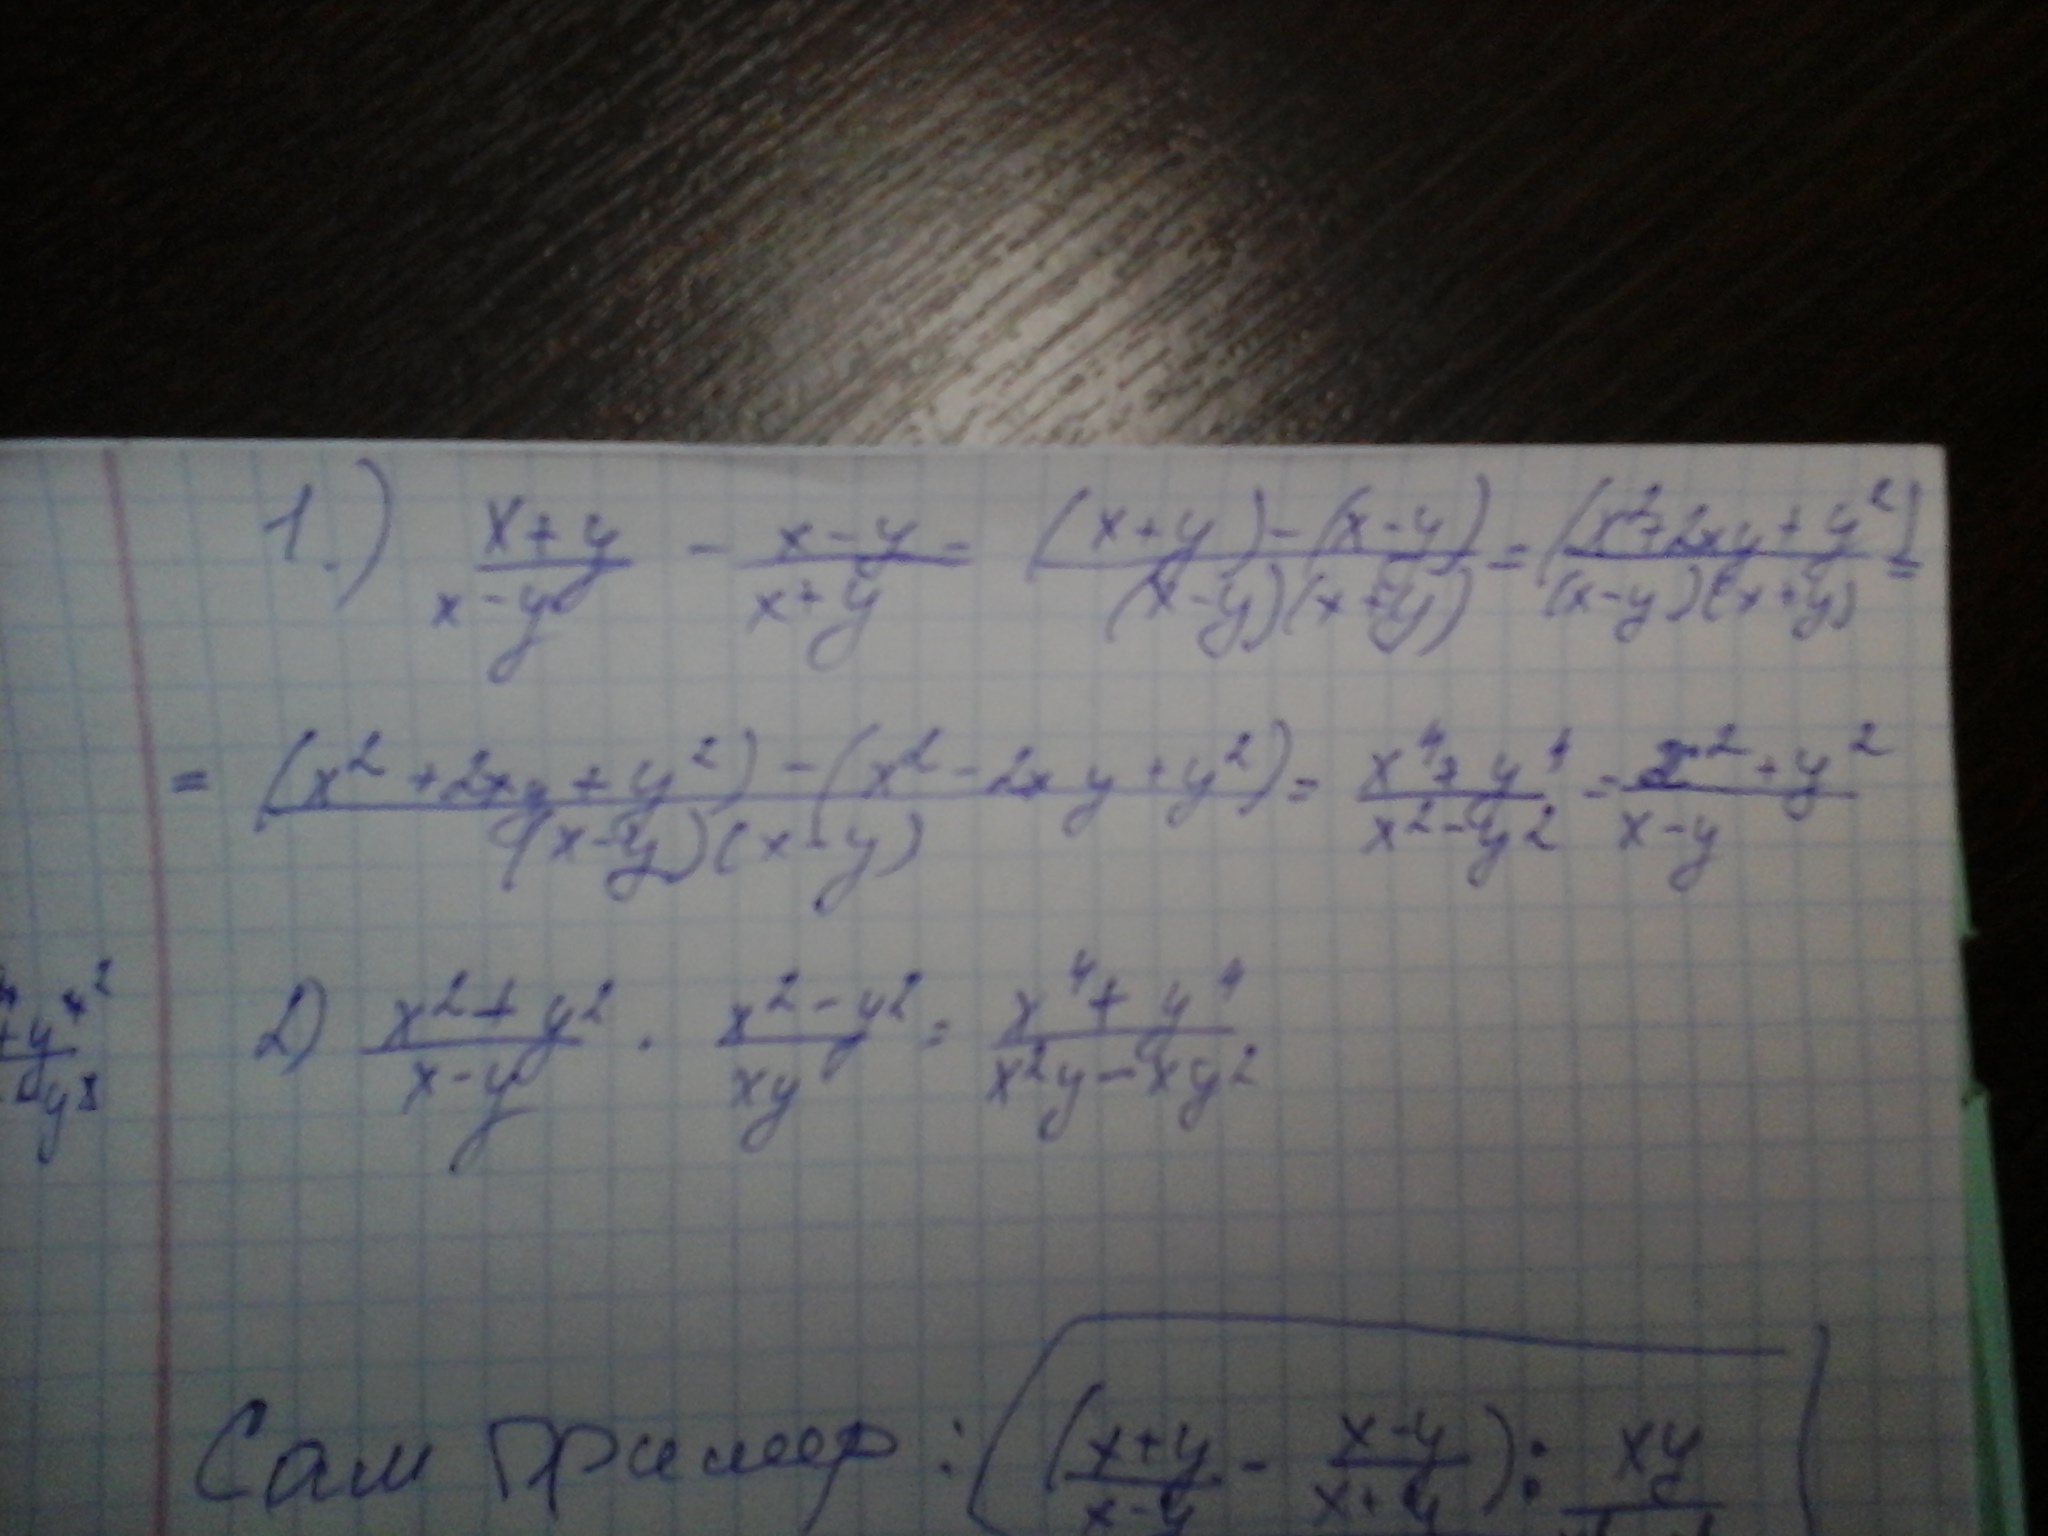 1.) (x+y)/(x-y) - (x-y)/(x+y) = ((x+y)-(x-y))/((x-y)(x+y)) = (x²+2xy+y²)/((x-y)(x+y)) =
= ((x²+2xy+y²)-(x²-2xy+y²))/((x-y)(x-y)) = (x⁴+y⁴)/(x²-y²) = (x²+y²)/(x-y)
2) (x²+y²)/(x-y) · (x²-y²)/(xy) = (x⁴+y⁴)/(x²y-xy²)
Сам пример: ((x+y)/(x-y) - (x-y)/(x+y)) : xy